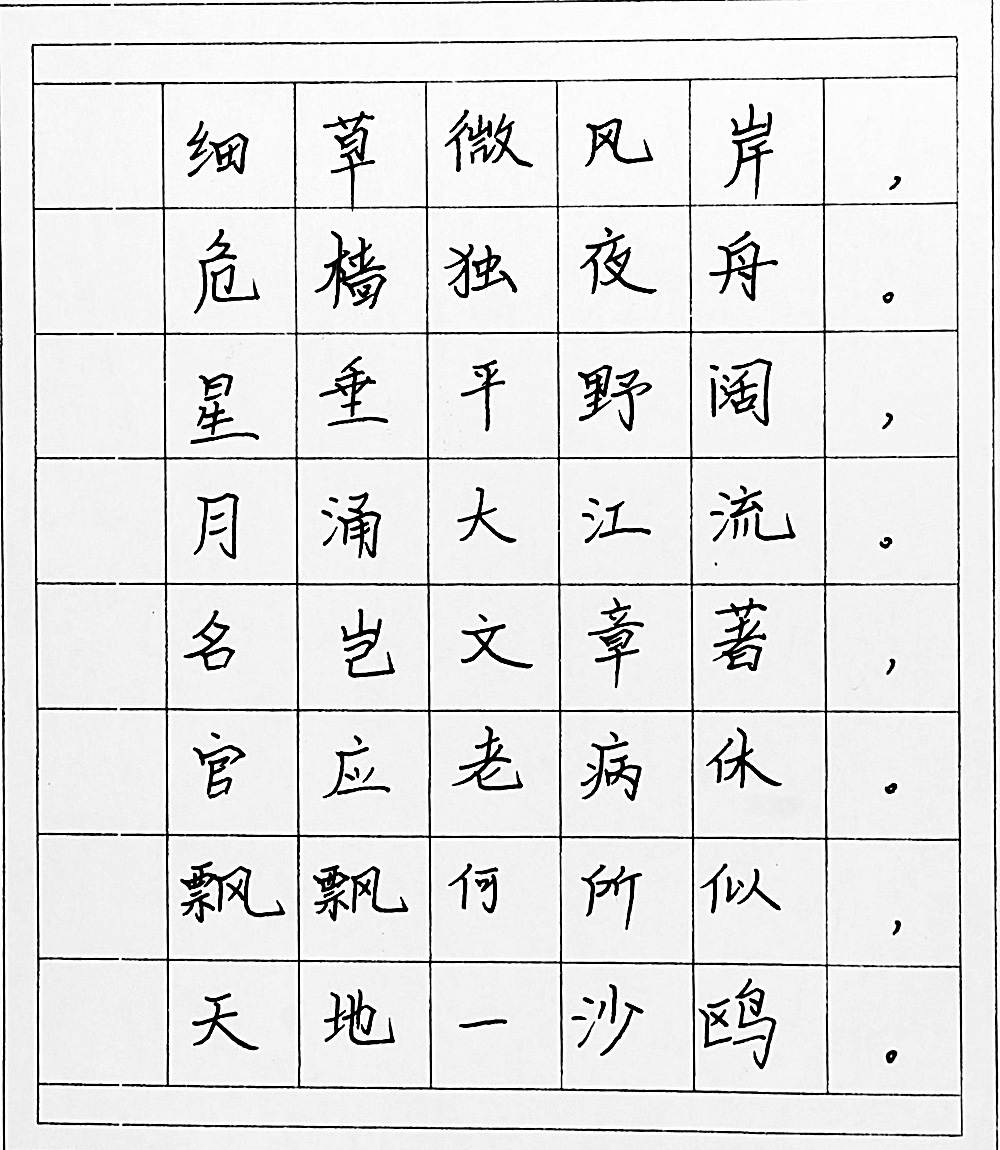 细草微风岸，
危樯独夜舟。
星垂平野阔，
月涌大江流。
名岂文章著，
官应老病休。
飘飘何所似，
天地一沙鸥。